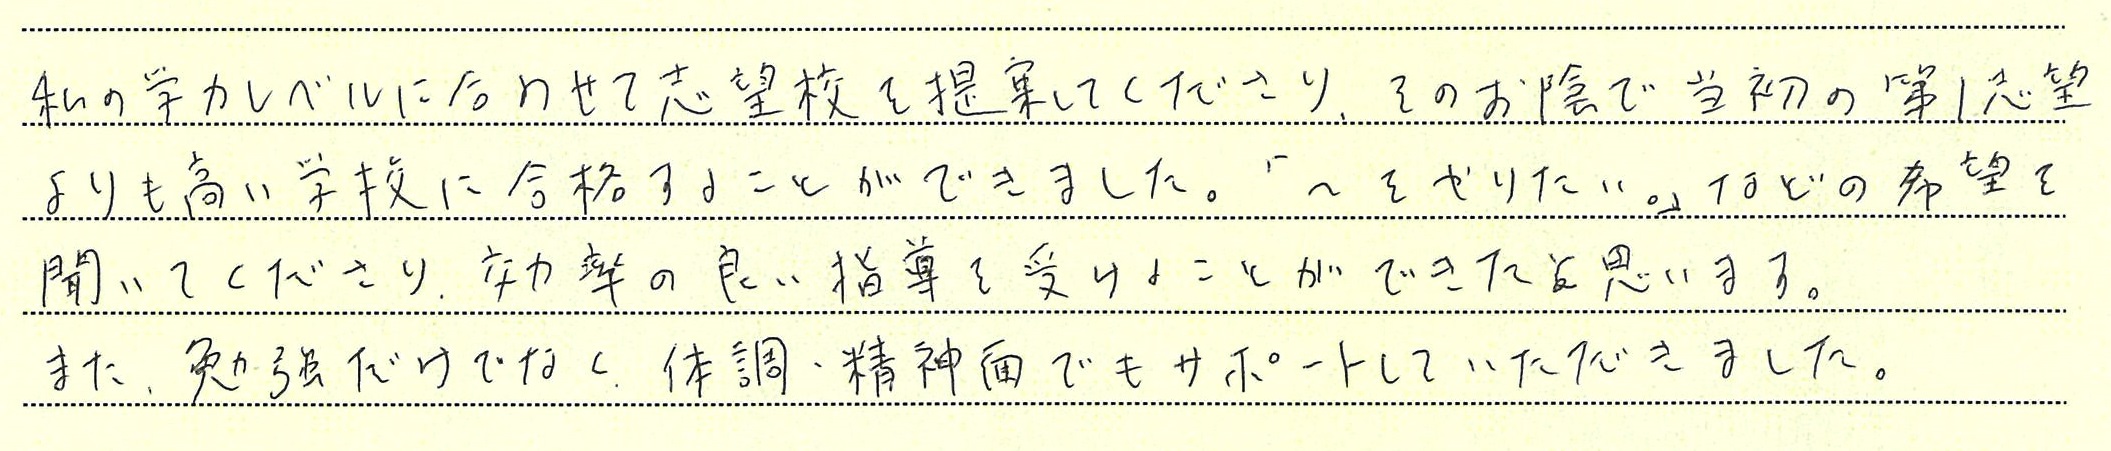 私の学力レベルに合わせて志望校を提案してくださり、そのお陰で当初の第1志望
よりも高い学校に合格することができました。「〜をやりたい。」などの希望を
聞いてくださり、効率の良い指導を受けることができたと思います。
また、勉強だけでなく、体調・精神面でもサポートしていただきました。